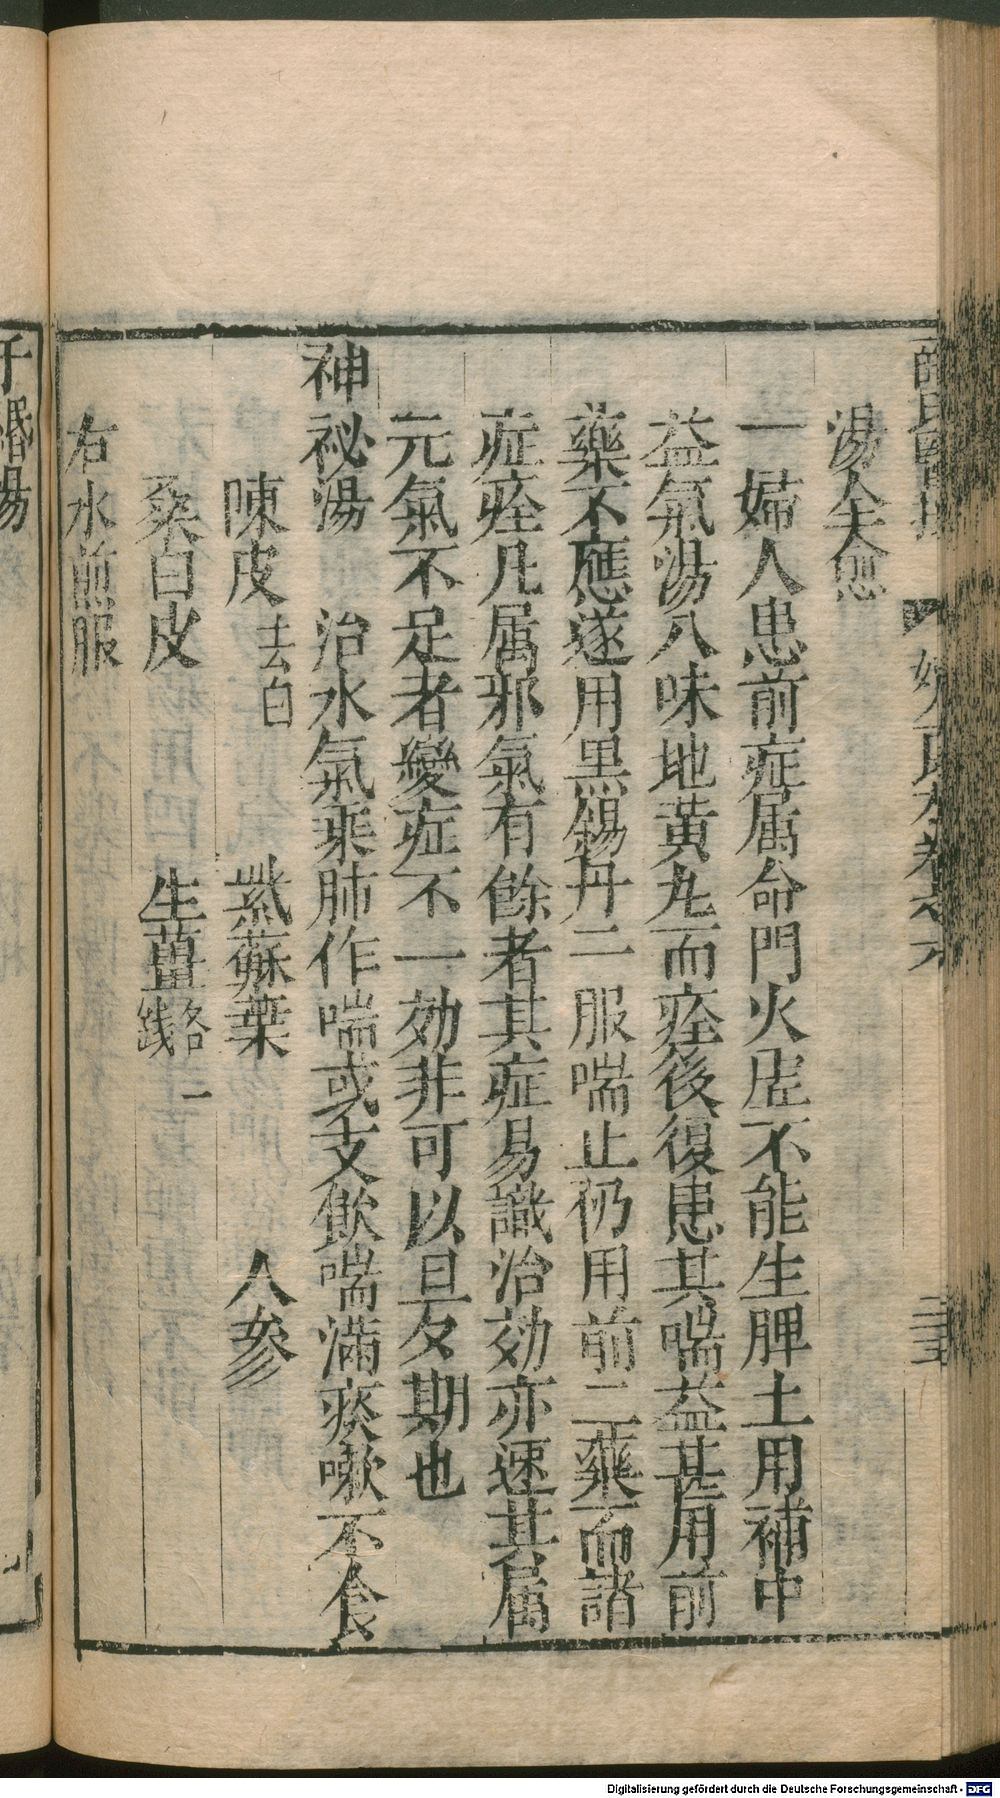 湯全愈
一婦人患前症属命門火虚不能生脾土用補中
益氣湯八味地黃丸而痊後復患其喘益甚用前
藥不應遂用黒錫丹二服喘止仍用前二藥而諸
症痊凡属邪氣有餘者其症易識治効亦速其属
元氣不足者變症不一効非可以旦夕期也
神祕湯 治水氣乘肺作喘或支飲喘滿痰嗽不食
陳皮去白 紫蘇葉 人參
桑白皮 生薑各一錢
右水煎服
湯
Digitalisierung gefördert durch die Deutsche Forschungsgemeinschaft - DFG